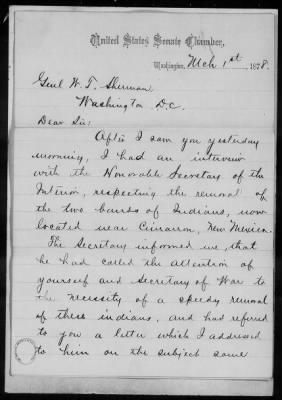 United States Senate Chamber,
Washington, Mch 1st 1878.
Genl W. T. Sherman
Washington D.C.
Dear Sir:
After I saw you yesterday
morning, I had an interview
with the Honorable Secretary of the
Interior, respecting the removal of
the two bands of Indians, now
located near Cimarron, New Mexico.
The Secretary informed me, that
he had called the attention of
yourself and Secretary of War to
the necessity of a speedy removal
of these indians, and had referred
to you a letter which I addressed
to him on the subject some